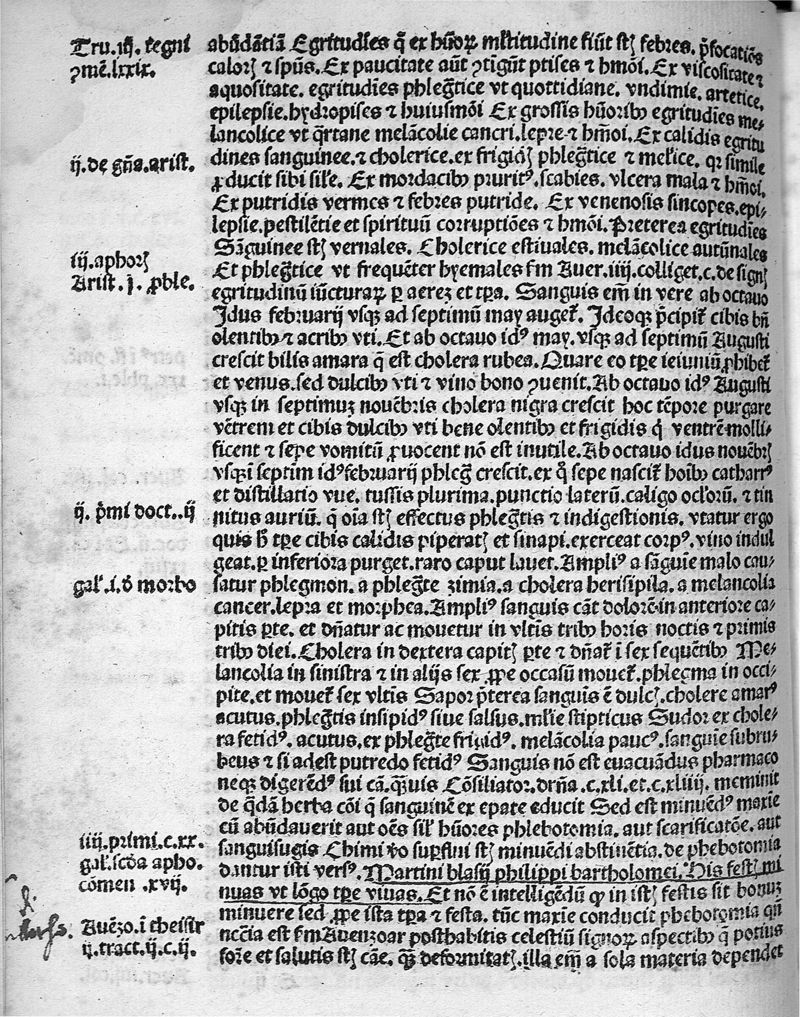 Tru. iij. tegni
ꝯmē. lxxix.
ij. de gn̄a. arist.
iij. aphorꝫ
Arist. j. ꝓble.
ij. p̄mi doct.. ij
gal̄. i. đ morbo
iiij. primi. c. xx.
gal̄. scđa apho.
cōmen .xvij.
Auēzo. ī theisir
ij. tract. ij. c. ij.
abūdātiā Egritudīes q̄ ex hūorꝝ ml̄titudine fiūt stꝫ febres. p̄focatiōs
calorꝫ ⁊ spūs. Ex paucitate aūt ꝯtīgūt ptises ⁊ hmōi. Ex viscositate ⁊
aquositate. egritudīes phleḡtice vt quottidiane. vndimie. artetice.
epilepsie. hydropises ⁊ huiusmōi Ex grossis hūoribꝰ egritudīes me-
lancolice vt q̄rtane melācolie cancri. lepre ⁊ hm̄oi. Ex calidis egritu
dines sanguinee. ⁊ cholerice. ex frigidꝫ phleḡtice ⁊ mel̄ice. qꝛ simile
ꝓducit sibi sil̄e. Ex mordacibꝰ pruritꝰ. scabies. vlcera mala ⁊ hm̄oi.
Ex putridis vermes ⁊ febres putride. Ex venenosis sincopes. epi-
lepsie. pestilētie et spirituū corruptiōes ⁊ hmōi. Preterea egritudīes
Sāguinee stꝫ vernales. Cholerice estiuales. melācolice autūnales
Et phleḡtice vt frequēter hyemales ẜm Auer. iiij. colliget. c. de signꝫ
egritudinū iūcturarꝝ ꝑ aerez et tꝑa. Sanguis em̄ in vere ab octauo
Idus februarij vsqꝫ ad septimū may augeꝉ. Ideoqꝫ p̄cipiꝉ cibis bn̄
olentibꝰ ⁊ acribꝰ vti. Et ab octauo idꝰ may. vsqꝫ ad septimū Augusti
crescit bilis amara q̄ est cholera rubea. Quare eo tꝑe ieiuniū ꝓhibeꝉ
et venus. sed dulcibꝰ vti ⁊ vino bono ꝯuenit. Ab octauo idꝰ Augusti
vsqꝫ in septimuz nouēbris cholera nigra crescit hoc tēpore purgare
vētrem et cibis dulcibꝰ vti bene olentibꝰ et frigidis q̇ ventrē molli-
ficent ⁊ sepe vomitū ꝓuocent nō est inutile. Ab octauo idus nouēbrꝫ
vsqꝫ ī septim idꝰ februarij phleḡ crescit. ex q̊ sepe nasciꝉ hoībꝰ catharrꝰ
et distillatio vue. tussis plurima. punctio laterū. caligo ocl̄orū. ⁊ tin
nitus auriū. q̄ oīa stꝫ effectus phleḡtis ⁊ indigestionis. vtatur ergo
quis ħ tꝑe cibis calidis piperatꝫ et sinapi. exerceat corpꝰ. vino indul
geat. ꝑ inferiora purget. raro caput lauet. Ampliꝰ a sāguie malo cau-
satur phlegmon. a phleḡte zimia. a cholera herisipila. a melancolia
cancer. lepra et morphea. Ampliꝰ sanguis cāt dolorē in anteriore ca-
pitis ꝑte. et dn̄atur ac mouetur in vltīs tribꝰ horis noctis ⁊ primis
tribꝰ diei. Cholera in dextera capitꝫ ꝑte ⁊ dn̄aꝉ ī sex sequētibꝰ Me-
lancolia in sinistra ⁊ in alijs sex ꝓpe occasū moueꝉ. phlegma in occi-
pite. et moueꝉ sex vltīs Sapor p̄terea sanguis ē dulcꝫ. cholere amarꝰ
acutus. phleḡtis insipidꝰ siue salsus. ml̄ie stipticus Sudor ex chole-
ra fetidꝰ. acutus. ex phleḡte frigidꝰ. melācolia paucꝰ. sanguīe subru-
beus ⁊ si adest putredo fetidꝰ Sanguis nō est euacuādus pharmaco
neqꝫ digerēdꝰ sui cā. q̄uis Cōsiliator. drn̄a. c. xli. et. c. xliiij. meminit
de q̄dā herba cōi q̄ sanguinē ex epate educit Sed est minuēdꝰ maxīe
cū abūdauerit aut oēs sil̄ hūores phlebotomia. aut scarificatōe. aut
sanguisugis Chimi v̊o suꝑflui stꝫ minuēdi abstinētia. de phebotomia
dantur isti versꝰ. Martini blasij philippi bartholomei. His festꝫ mi
nuas vt lōgo tꝑe viuas. Et nō ē intelligēdū ꝙ in istꝫ festis sit bonuz
minuere sed ꝓpe ista tꝑa ⁊ festa. tūc maxīe conducit phebotomia qn̄
nccīa est ẜm Auenzoar posthabitis celestiū signorꝝ aspectibꝰ q̄ potius
fore et salutis stꝫ cāe. qꝫ deformitatꝫ. illa em̄ a sola materia dependet